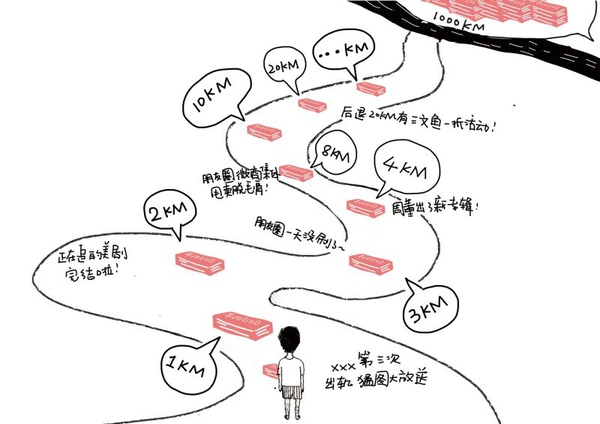 1000KM
...KM
20KM
10KM
后退20KM有三文鱼一折活动!
8KM
4KM
朋友圈微商集体
甩卖脱毛膏!
周董出了新专辑!
2KM
朋友圈一天没刷了~
正在追的美剧
完结啦!
3KM
FYODOD
1KM
xxx第三次
出轨 猛图大放送